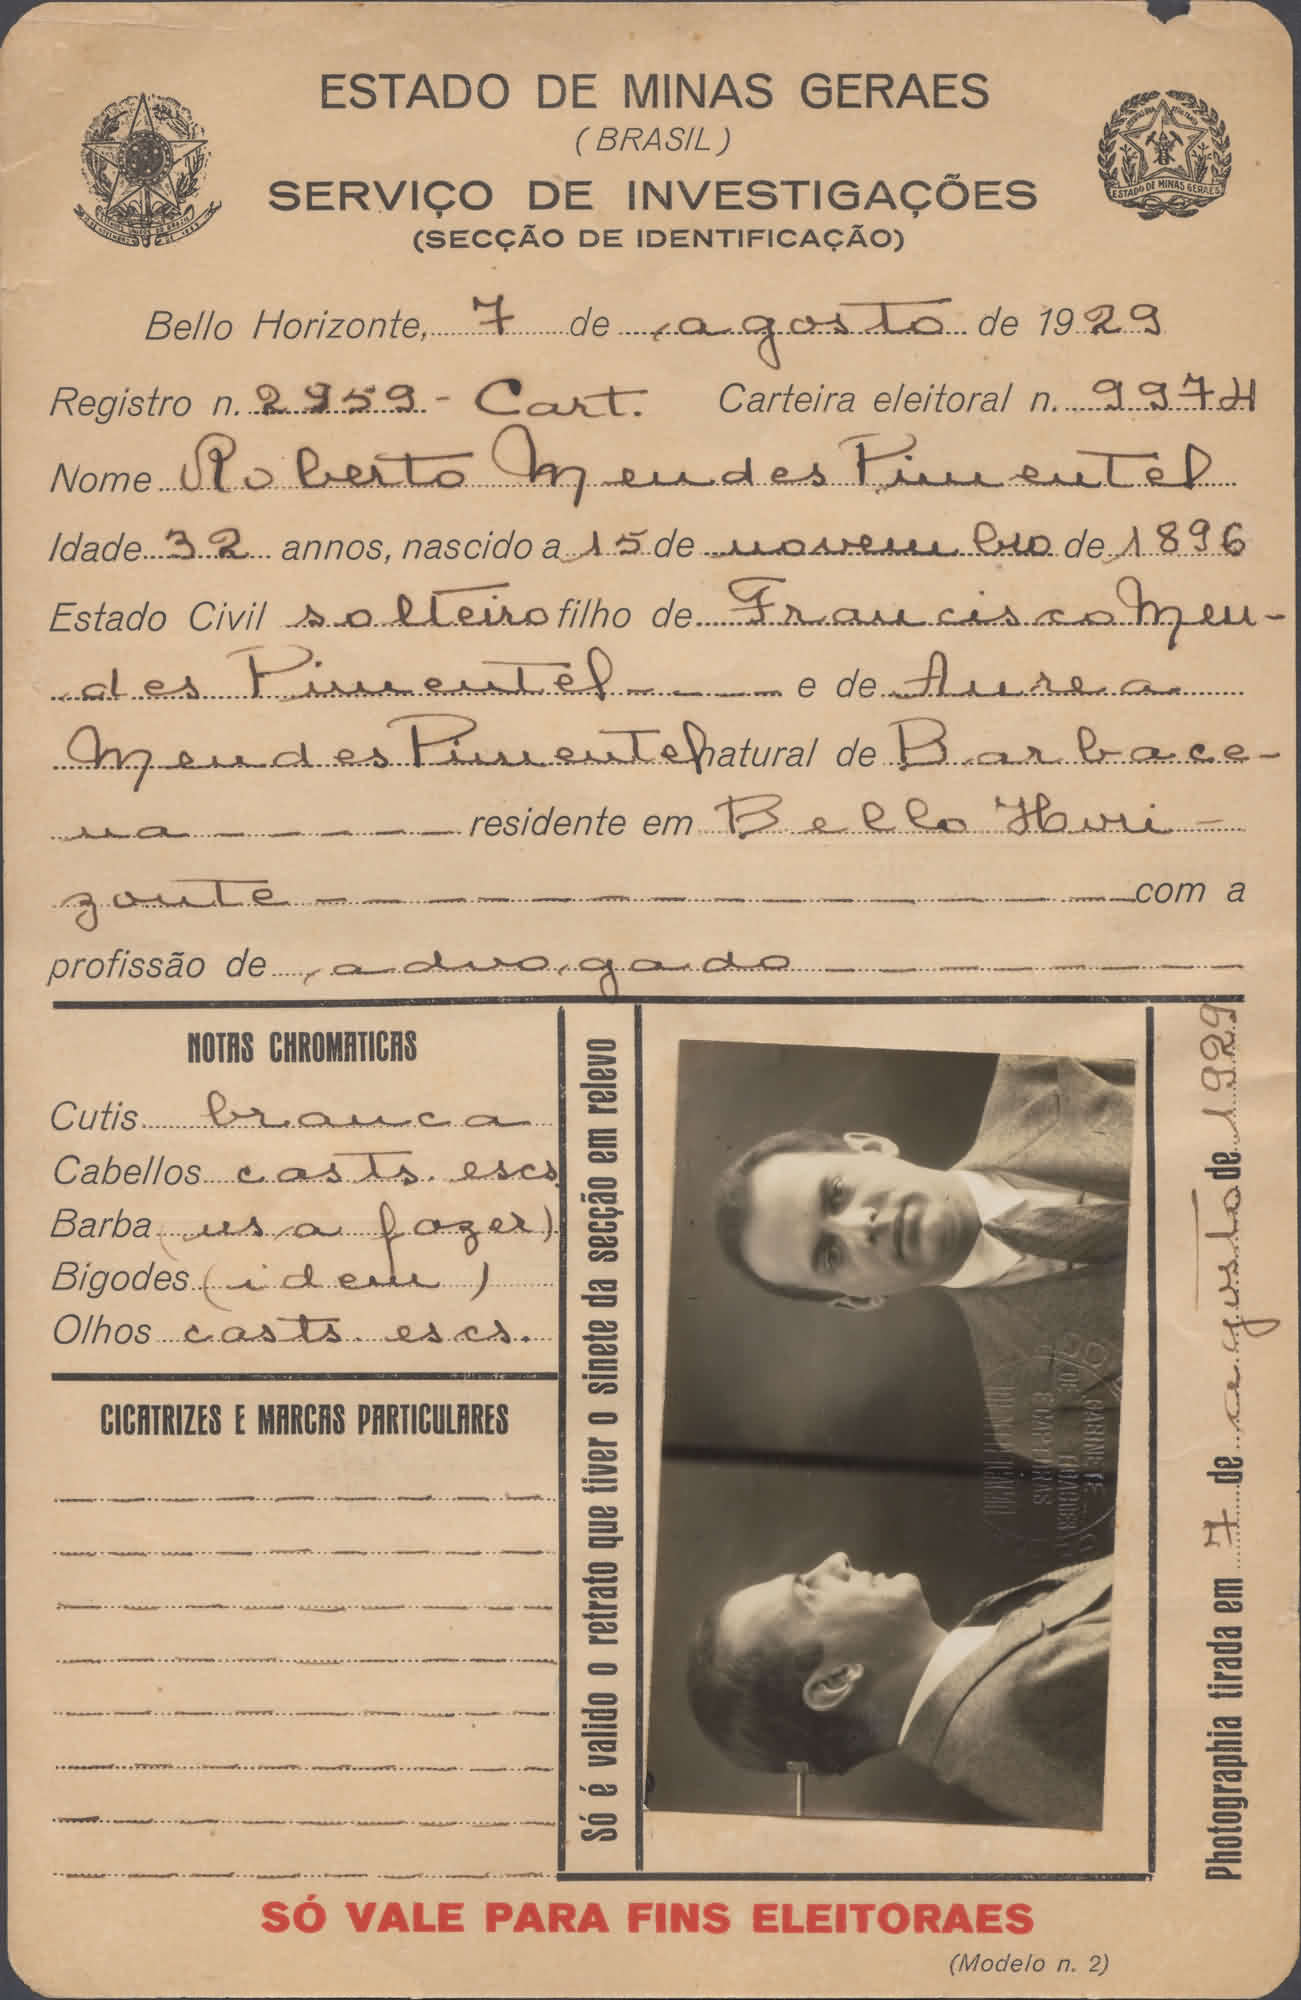 ESTADO DE MINAS GERAES
(BRASIL)
SERVIÇO DE INVESTIGAÇÕES
(SECÇÃO DE IDENTIFICAÇÃO)
ESTADO DE MINAS GERAES
Bello Horizonte, 7 de agosto de 1929
Registro n. 2959 - Cart. Carteira eleitoral n. 9974
Nome Roberto Mendes Pimentel
Idade 32 annos, nascido a 15 de novembro de 1896
Estado Civil solteiro filho de Francisco Men-
des Pimentel e de Aurea
Mendes Pimentel natural de Barbace-
na residente em Bello Hori-
zonte com a
profissão de advogado
NOTAS CHROMATICAS
Cutis branca
Cabellos casts. escs.
Barba (usa fazer)
Bigodes (idem)
Olhos casts. escs.
CICATRIZES E MARCAS PARTICULARES
Só é valido o retrato que tiver o sinete da secção em relevo
GABINETE
DE
E CAPTURAS
Photographia tirada em 7 de agosto de 1929
SÓ VALE PARA FINS ELEITORAES
(Modelo n. 2)